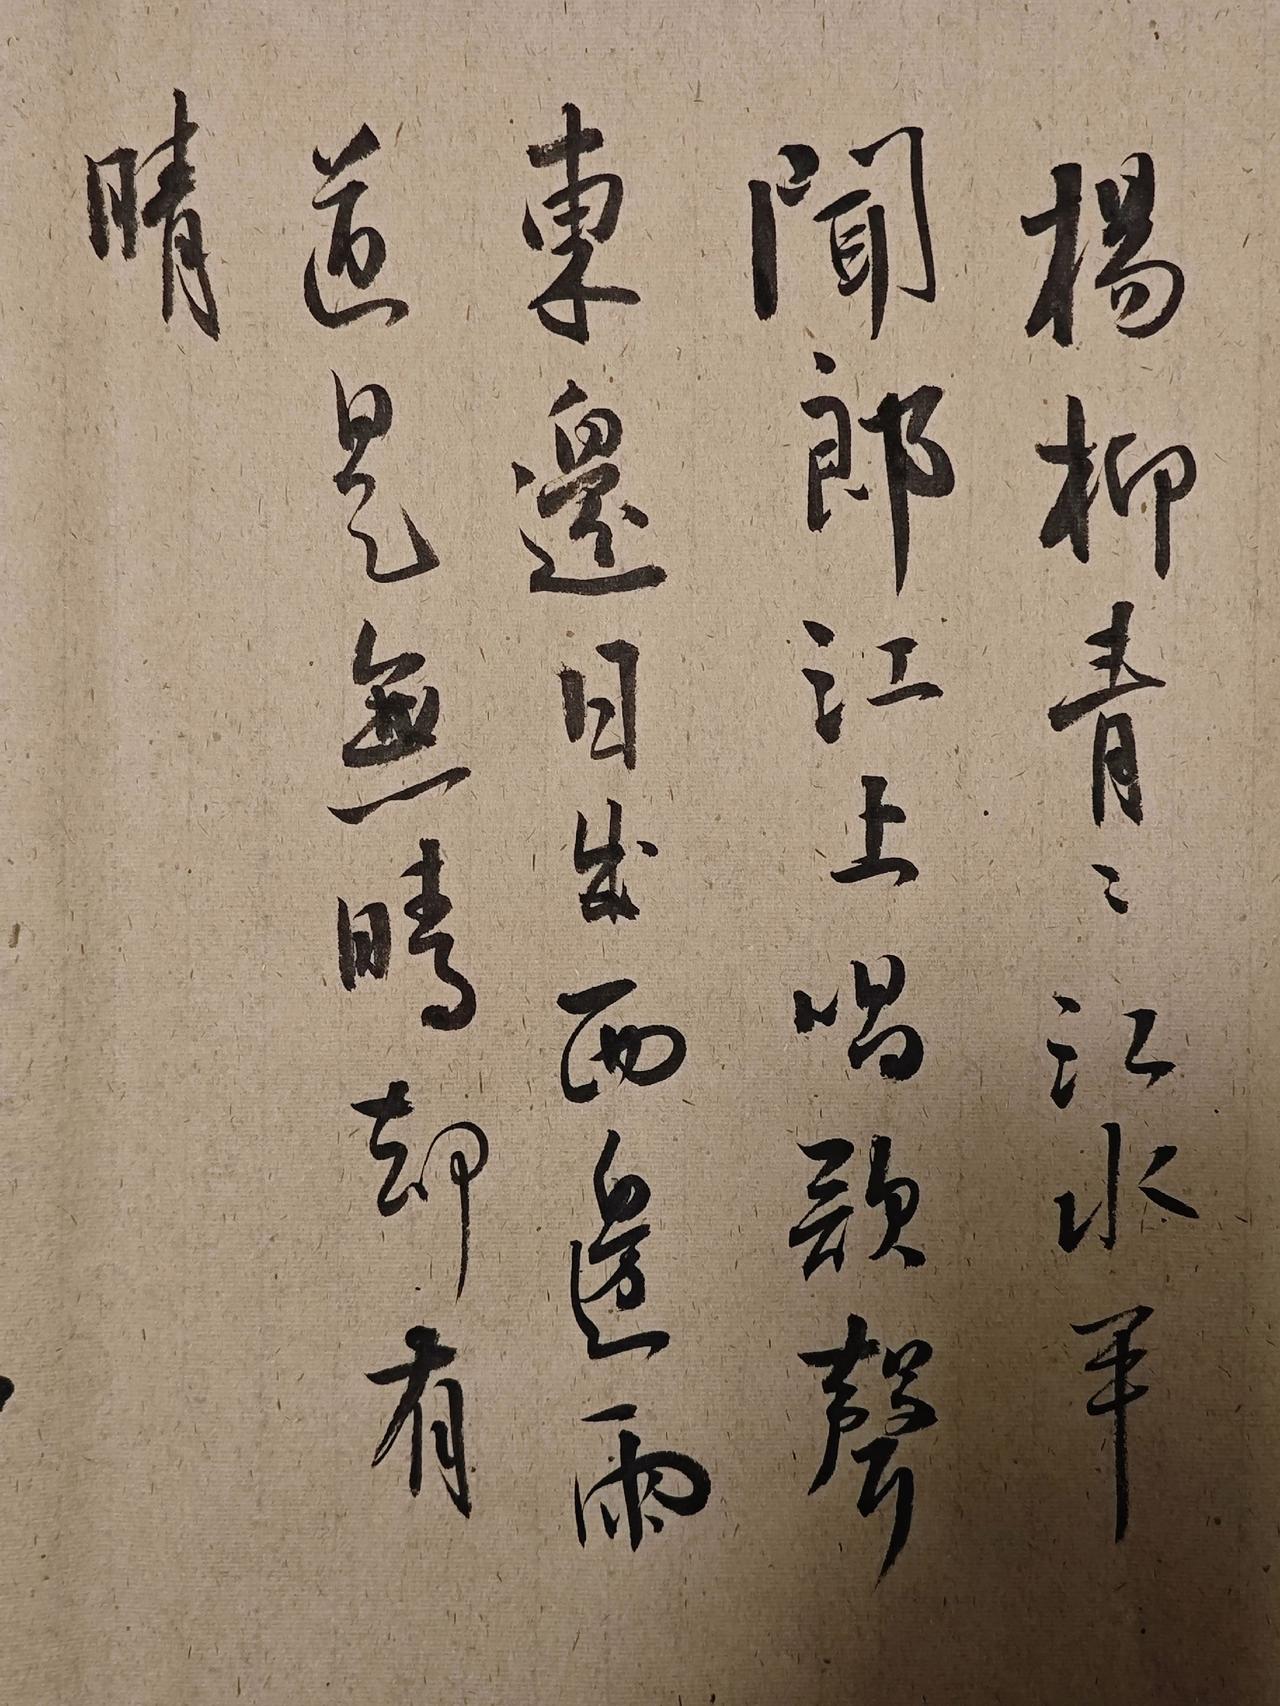 楊柳青〻江水平
聞郎江上唱歌聲
東邊日出西邊雨
道是無晴却有
晴